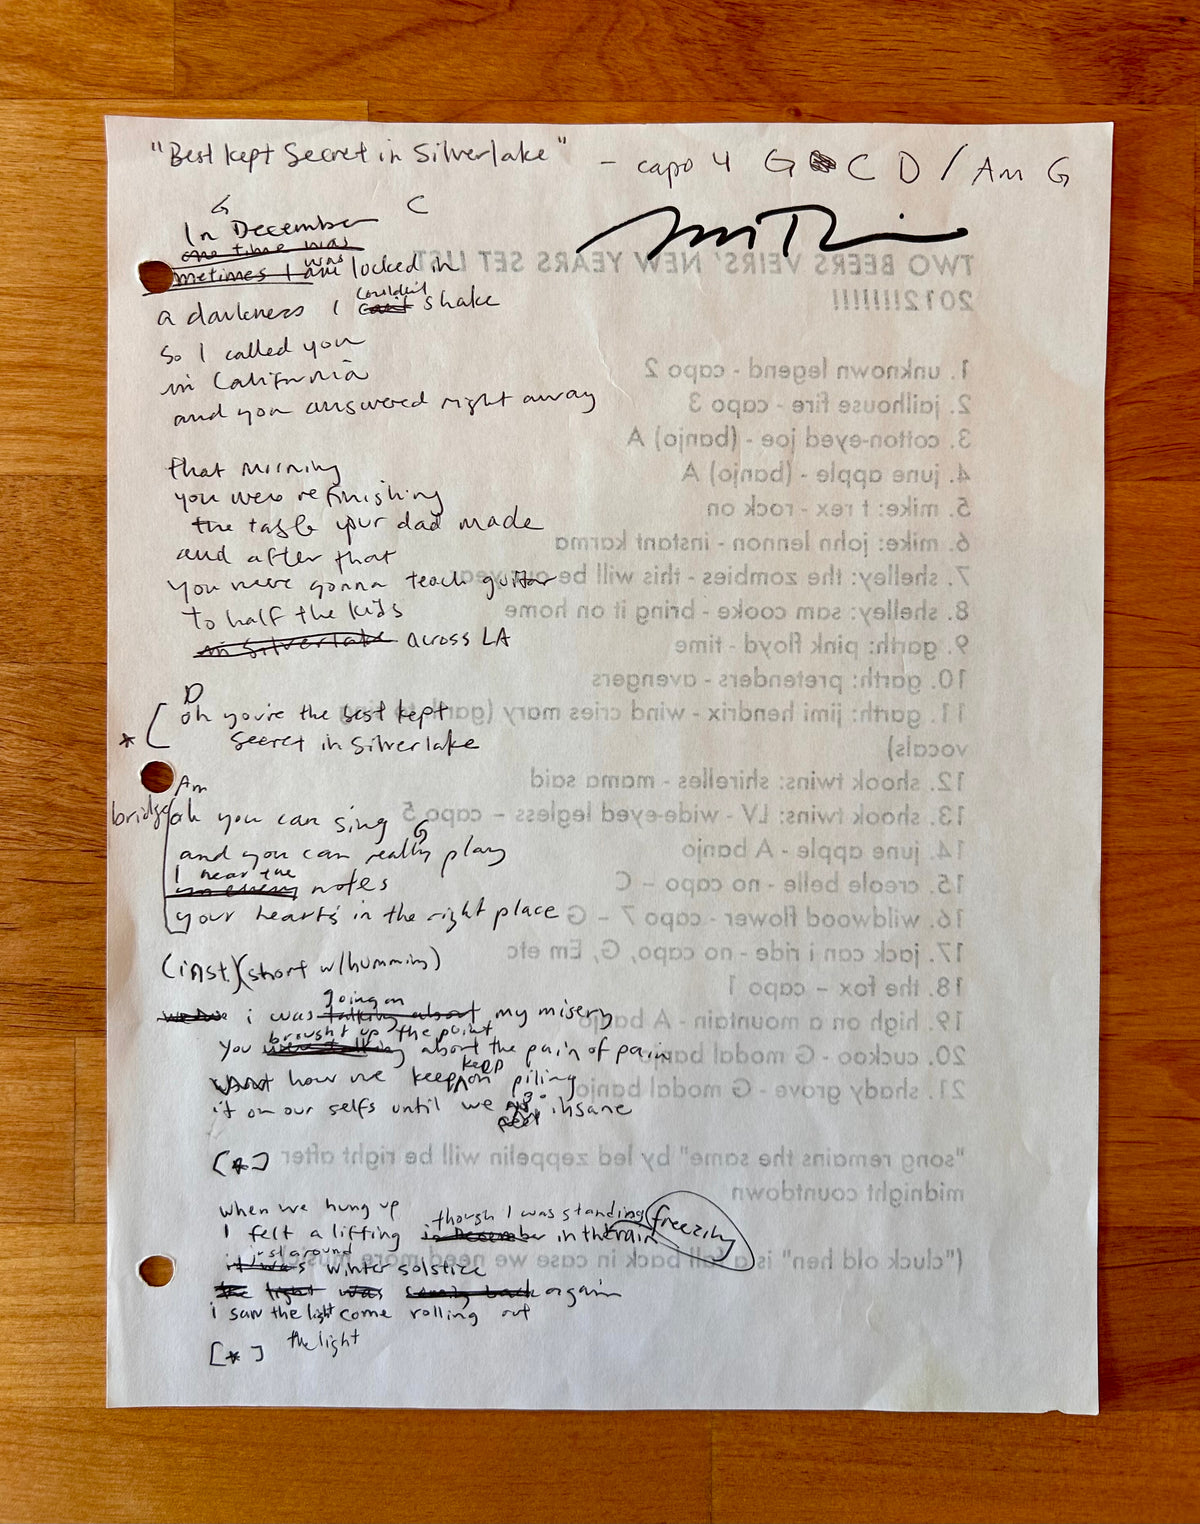 "Best kept Secret in Silverlake" - capo 4 G C D / Am G
G C
In December
one time was
was
metimes I am locked in
couldn't
a darkness I can't shake
So I called you
in California
and you answered right away
that morning
you were refinishing
the table your dad made
and after that
you were gonna teach guitar
to half the kids
in Silverlake across LA
D
oh you're the best kept
* secret in Silverlake
Am
bridge oh you can sing
G
and you can really play
I hear the
notes
your heart's in the right place
(inst.) (short w/humming)
going on
i was talking about my misery
brought up the point
you were talking about the pain of pain
keep
how we keep on piling
it on our selfs until we go insane
[*]
when we hung up
though I was standing freezing
I felt a lifting in December in the rain
just around
it was winter solstice
the light was coming back again
i saw the light come rolling out
[*] the light
TWO BEERS VEIRS' NEW YEARS SET LIST
2012!!!!!!!
1. unknown legend - capo 2
2. jailhouse fire - capo 3
3. cotton-eyed joe - (banjo) A
4. june apple - (banjo) A
5. mike: t rex - rock on
6. mike: john lennon - instant karma
7. shelley: the zombies - this will be our year
8. shelley: sam cooke - bring it on home
9. garth: pink floyd - time
10. garth: pretenders - avengers
11. garth: jimi hendrix - wind cries mary (garth to sing
vocals)
12. shook twins: shirelles - mama said
13. shook twins: LV - wide-eyed legless - capo 5
14. june apple - A banjo
15. creole belle - no capo - C
16. wildwood flower - capo 7 - G
17. jack can i ride - no capo, G, Em etc
18. the fox - capo 1
19. high on a mountain - A banjo
20. cuckoo - G modal banjo
21. shady grove - G modal banjo
"song remains the same" by led zeppelin will be right after
midnight countdown
("cluck old hen" is a fall back in case we need more music)